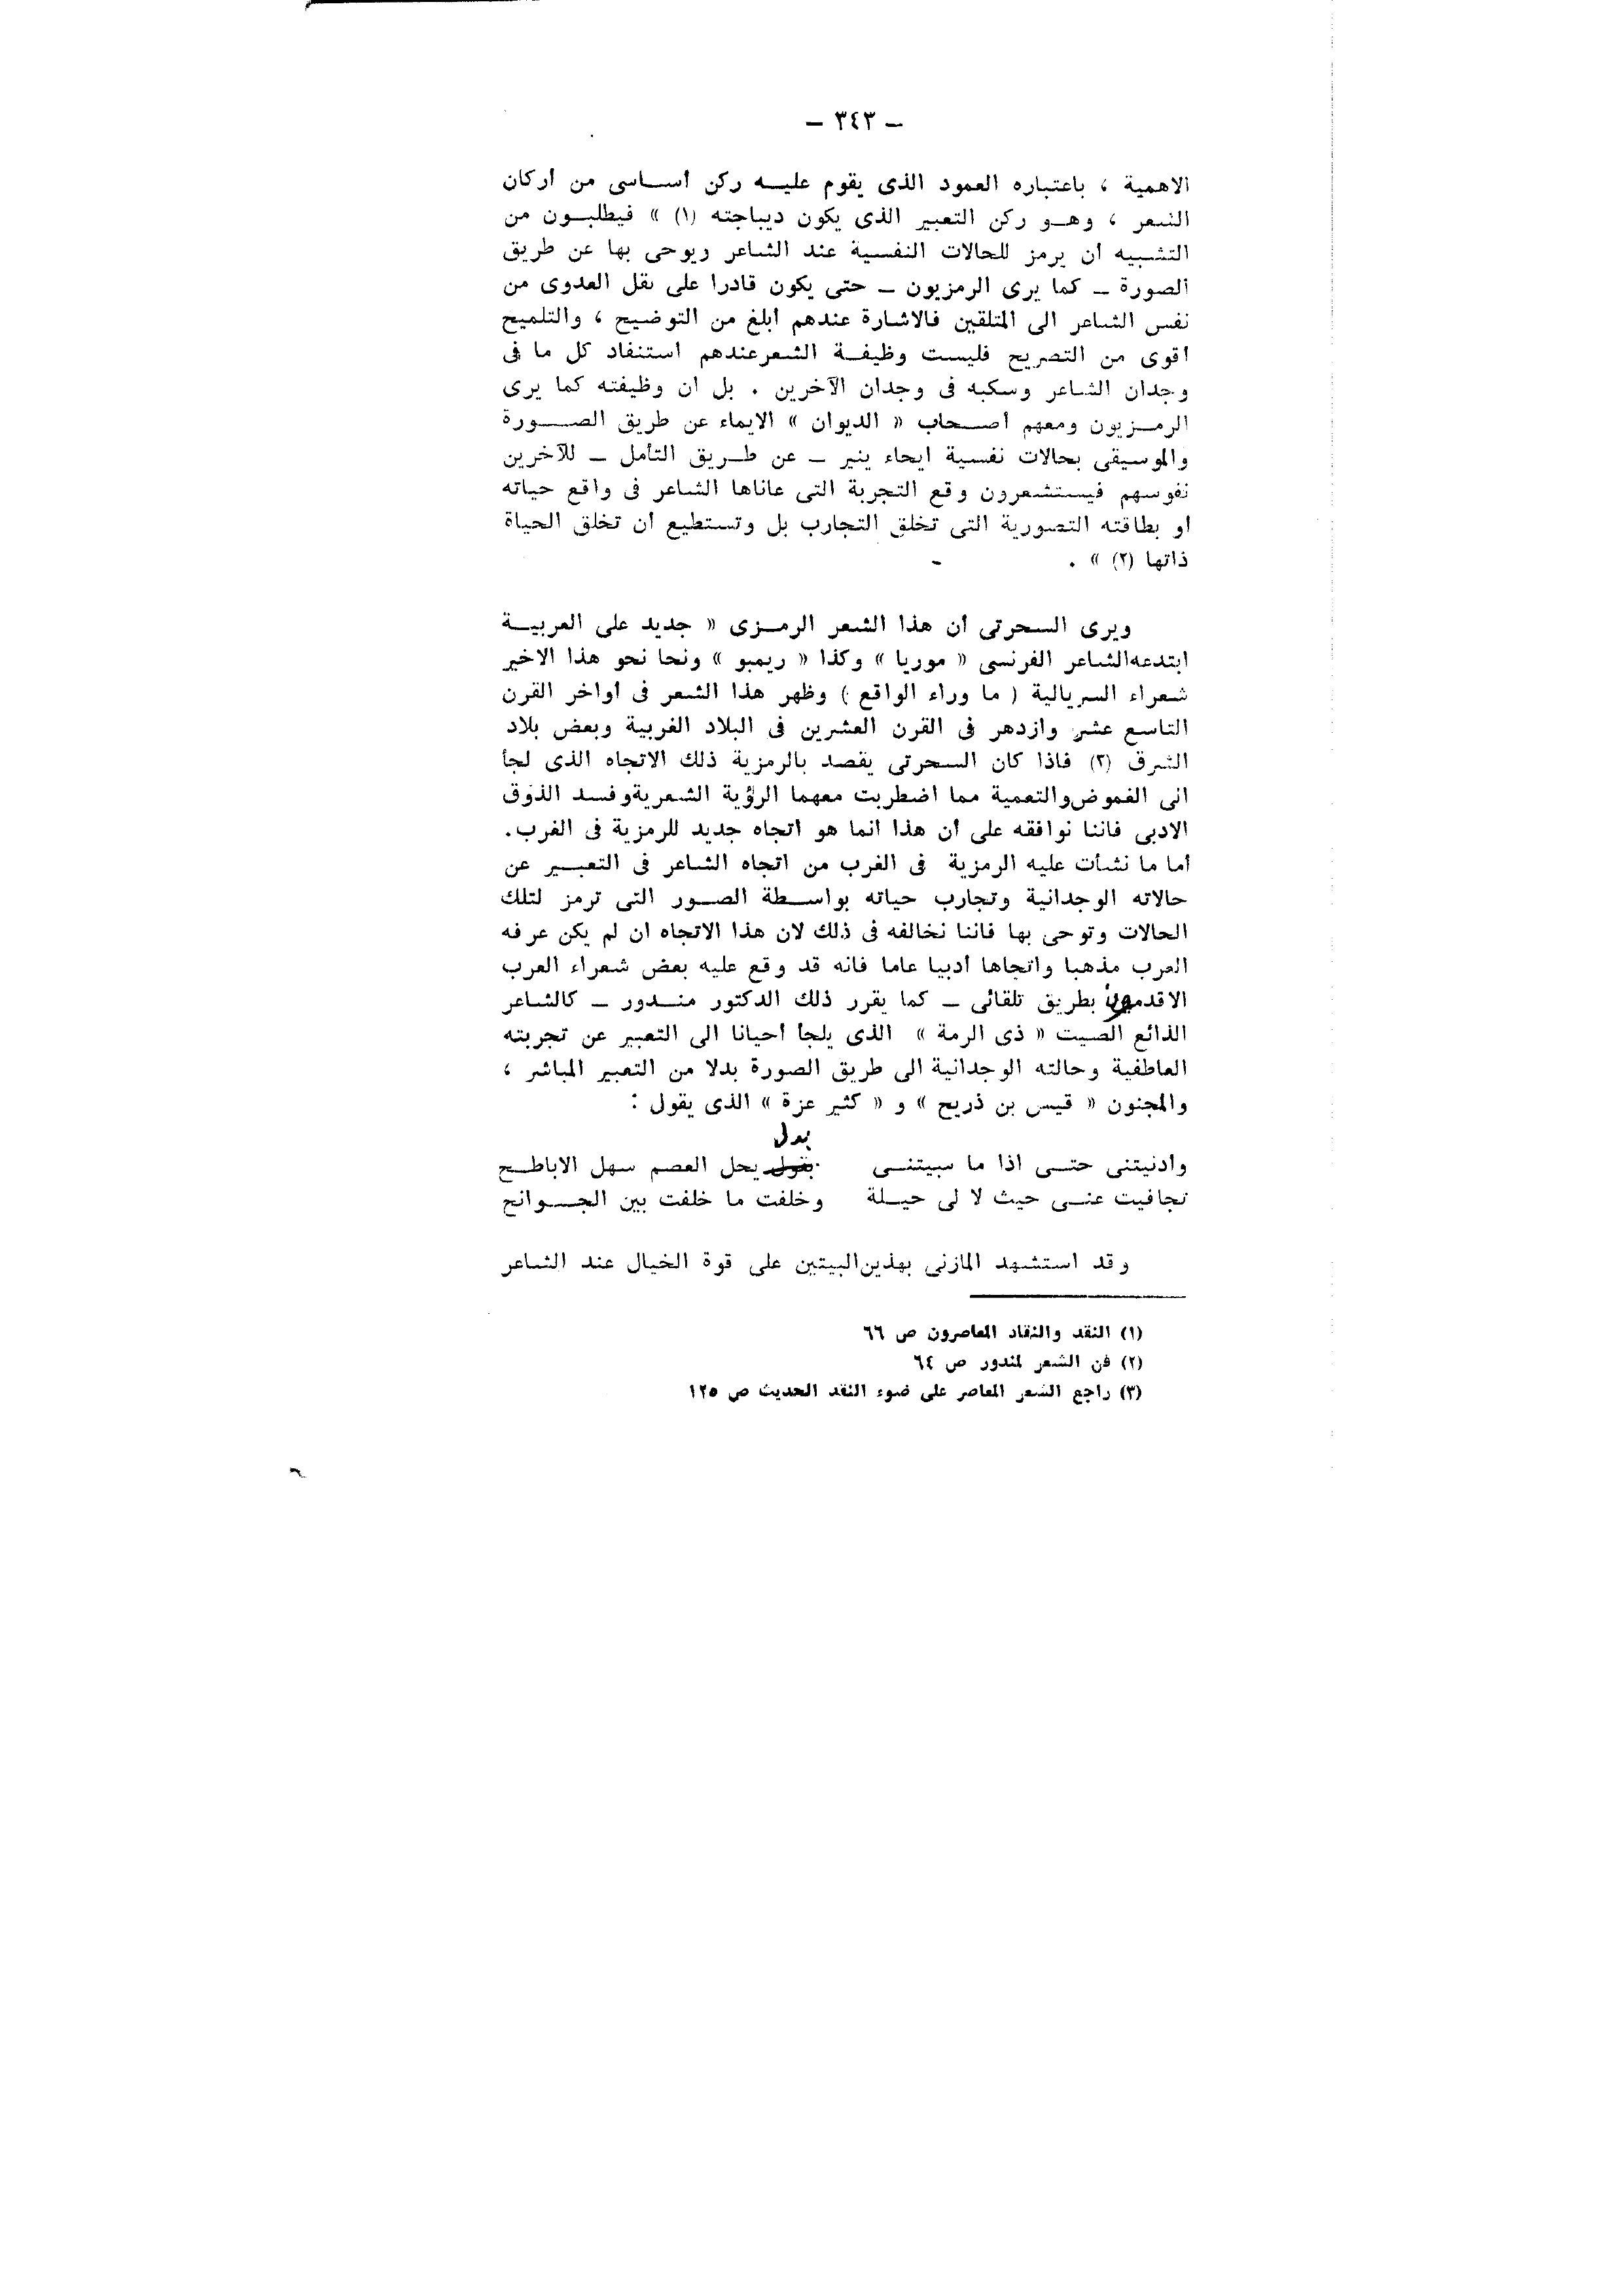 – ٣٤٣ –
الاهمية ، باعتباره العمود الذى يقوم عليـه ركن أسـاسى من أركان
الشعر ، وهـو ركن التعبير الذى يكون ديباجته (١) » فيطلبـون من
التشبيه أن يرمز للحالات النفسية عند الشاعر ويوحى بها عن طريق
الصورة – كما يرى الرمزيون – حتى يكون قادرا على نقل العدوى من
نفس الشاعر الى المتلقين فالاشارة عندهم أبلغ من التوضيح ، والتلميح
أقوى من التصريح فليست وظيفـة الشعر عندهم استنفاد كل ما فى
وجدان الشاعر وسكبه فى وجدان الآخرين . بل ان وظيفته كما يرى
الرمـزيون ومعهم أصـحاب « الديوان » الايماء عن طريق الصـورة
والموسيقى بحالات نفسية ايحاء ينير – عن طـريق التأمل – للآخرين
نفوسهم فيستشعرون وقع التجربة التى عاناها الشاعر فى واقع حياته
أو بطاقته التصورية التى تخلق التجارب بل وتستطيع أن تخلق الحياة
ذاتها (٢) » .
ويرى السحرتى أن هذا الشعر الرمـزى « جديد على العربيـة
ابتدعه الشاعر الفرنسى « موريا » وكذا « ريمبو » ونحا نحو هذا الاخير
شعراء السريالية ( ما وراء الواقع ) وظهر هذا الشعر فى أواخر القرن
التاسع عشر وازدهر فى القرن العشرين فى البلاد الغربية وبعض بلاد
الشرق (٣) فاذا كان السحرتى يقصد بالرمزية ذلك الاتجاه الذى لجأ
الى الغموض والتعمية مما اضطربت معهما الرؤية الشعرية وفسد الذوق
الادبى فاننا نوافقه على أن هذا انما هو اتجاه جديد للرمزية فى الغرب.
أما ما نشأت عليه الرمزية فى الغرب من اتجاه الشاعر فى التعبـير عن
حالاته الوجدانية وتجارب حياته بواسـطة الصـور التى ترمز لتلك
الحالات وتوحى بها فاننا نخالفه فى ذلك لان هذا الاتجاه ان لم يكن عرفه
العرب مذهبا واتجاها أدبيا عاما فانه قد وقع عليه بعض شعراء العرب
الاقدمون بطريق تلقائى – كما يقرر ذلك الدكتور منـدور – كالشاعر
الذائع الصيت « ذى الرمة » الذى يلجأ أحيانا الى التعبير عن تجربته
العاطفية وحالته الوجدانية الى طريق الصورة بدلا من التعبير المباشر ،
والمجنون « قيس بن ذريح » و « كثير عزة » الذى يقول :
بدل
وادنيتنى حتـى اذا ما سبيتنـى بقول يحل العصم سهل الاباطـح
تجافيت عنـى حيث لا لى حيـلة وخلفت ما خلفت بين الجـوانح
وقد استشهد المازنى بهذين البيتين على قوة الخيال عند الشاعر
(١) النقد والنقاد المعاصرون ص ٦٦
(٢) فن الشعر لمندور ص ٦٤
(٣) راجع الشعر المعاصر على ضوء النقد الحديث ص ١٢٥